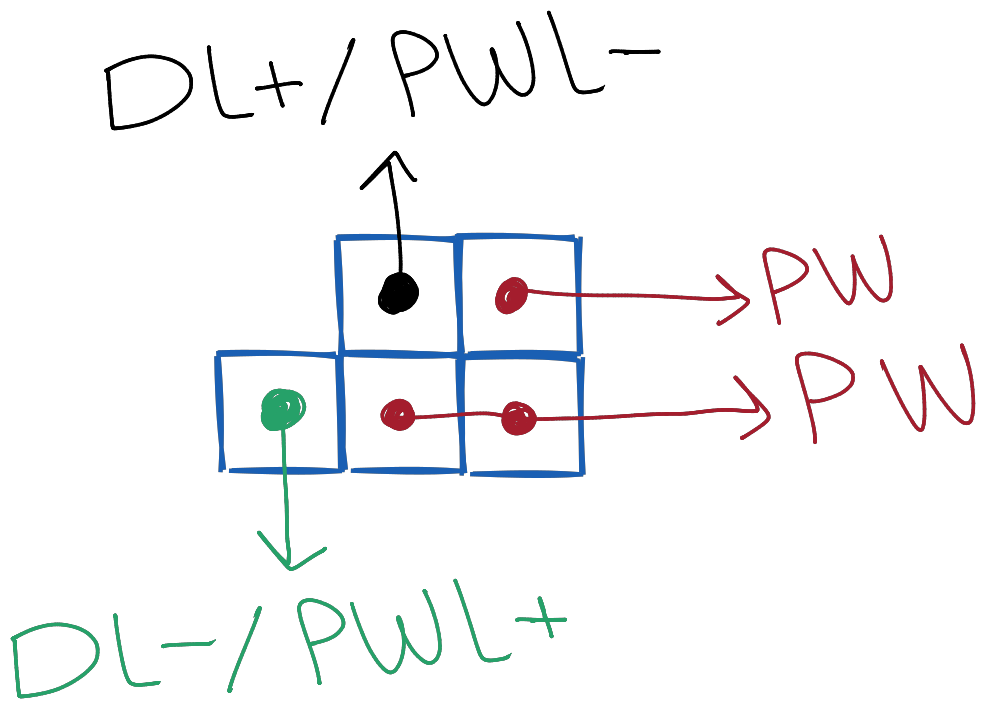 DL+/PWL-
PW
PW
DL-/PWL+